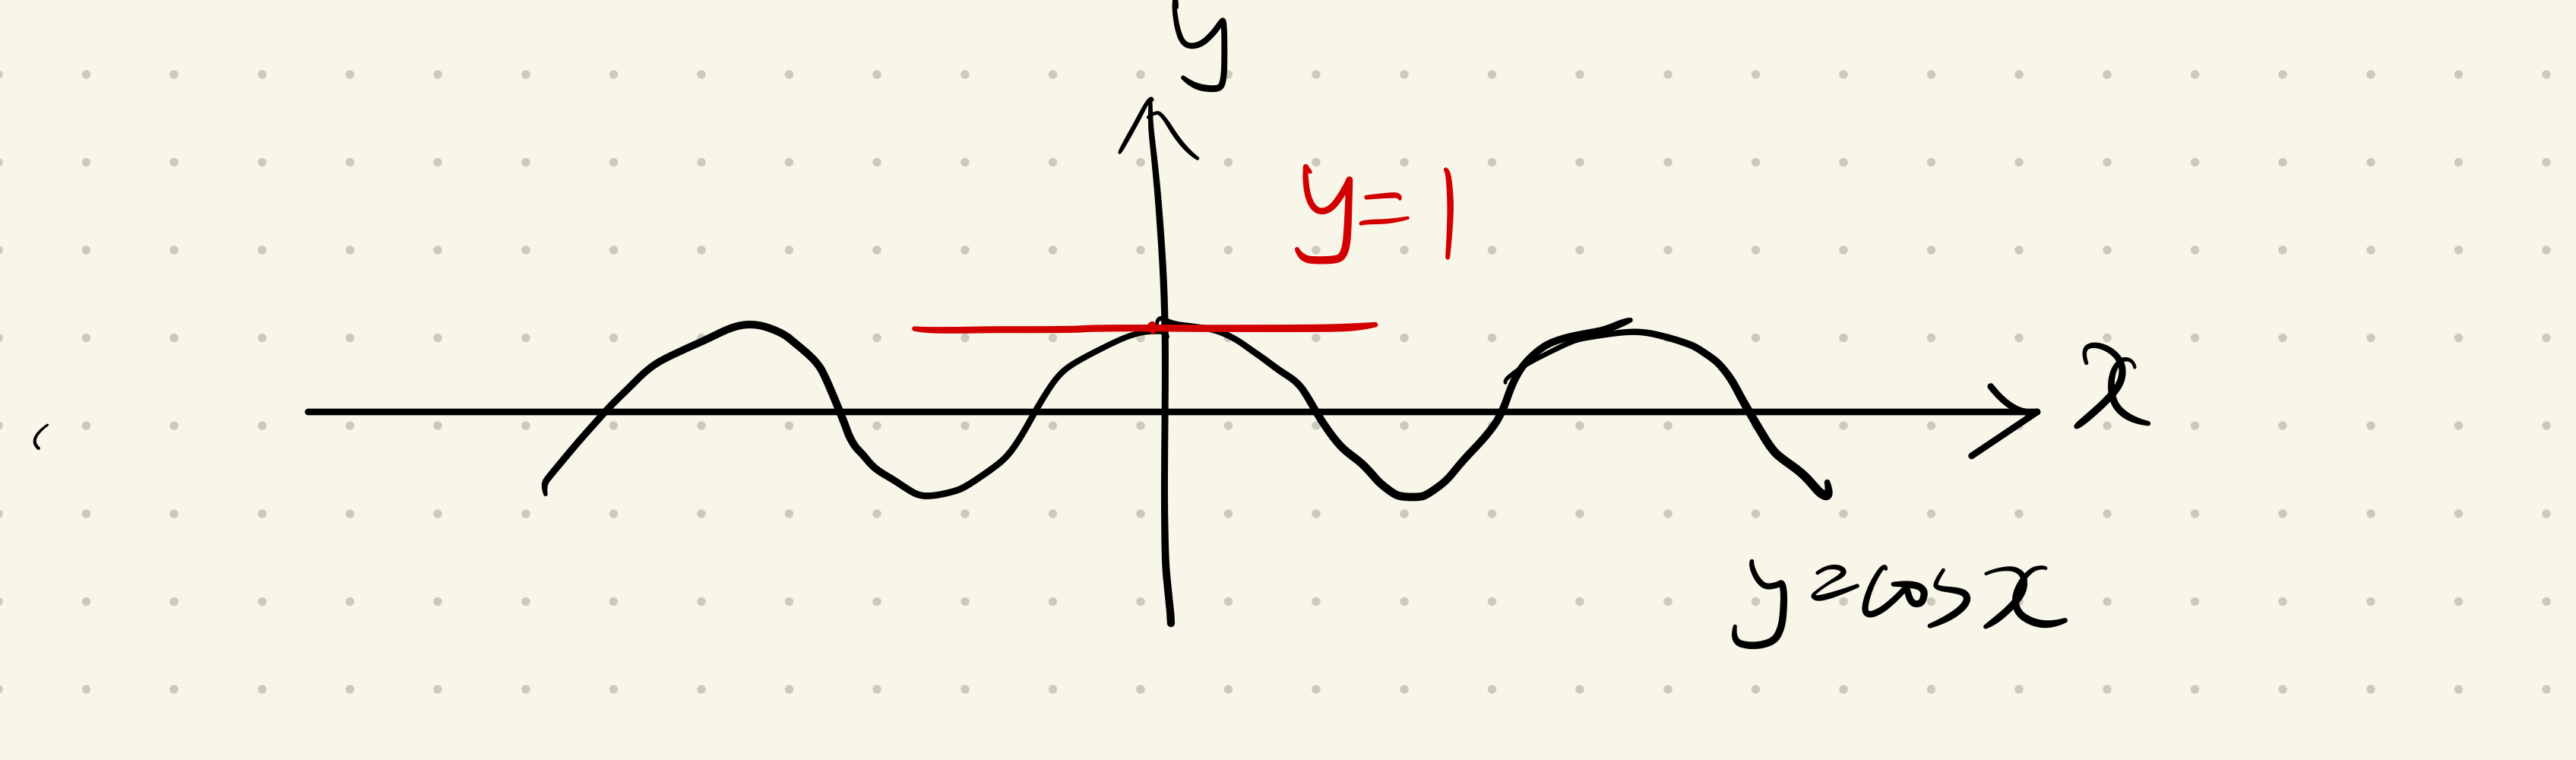 y
y=1
x
y=cosx